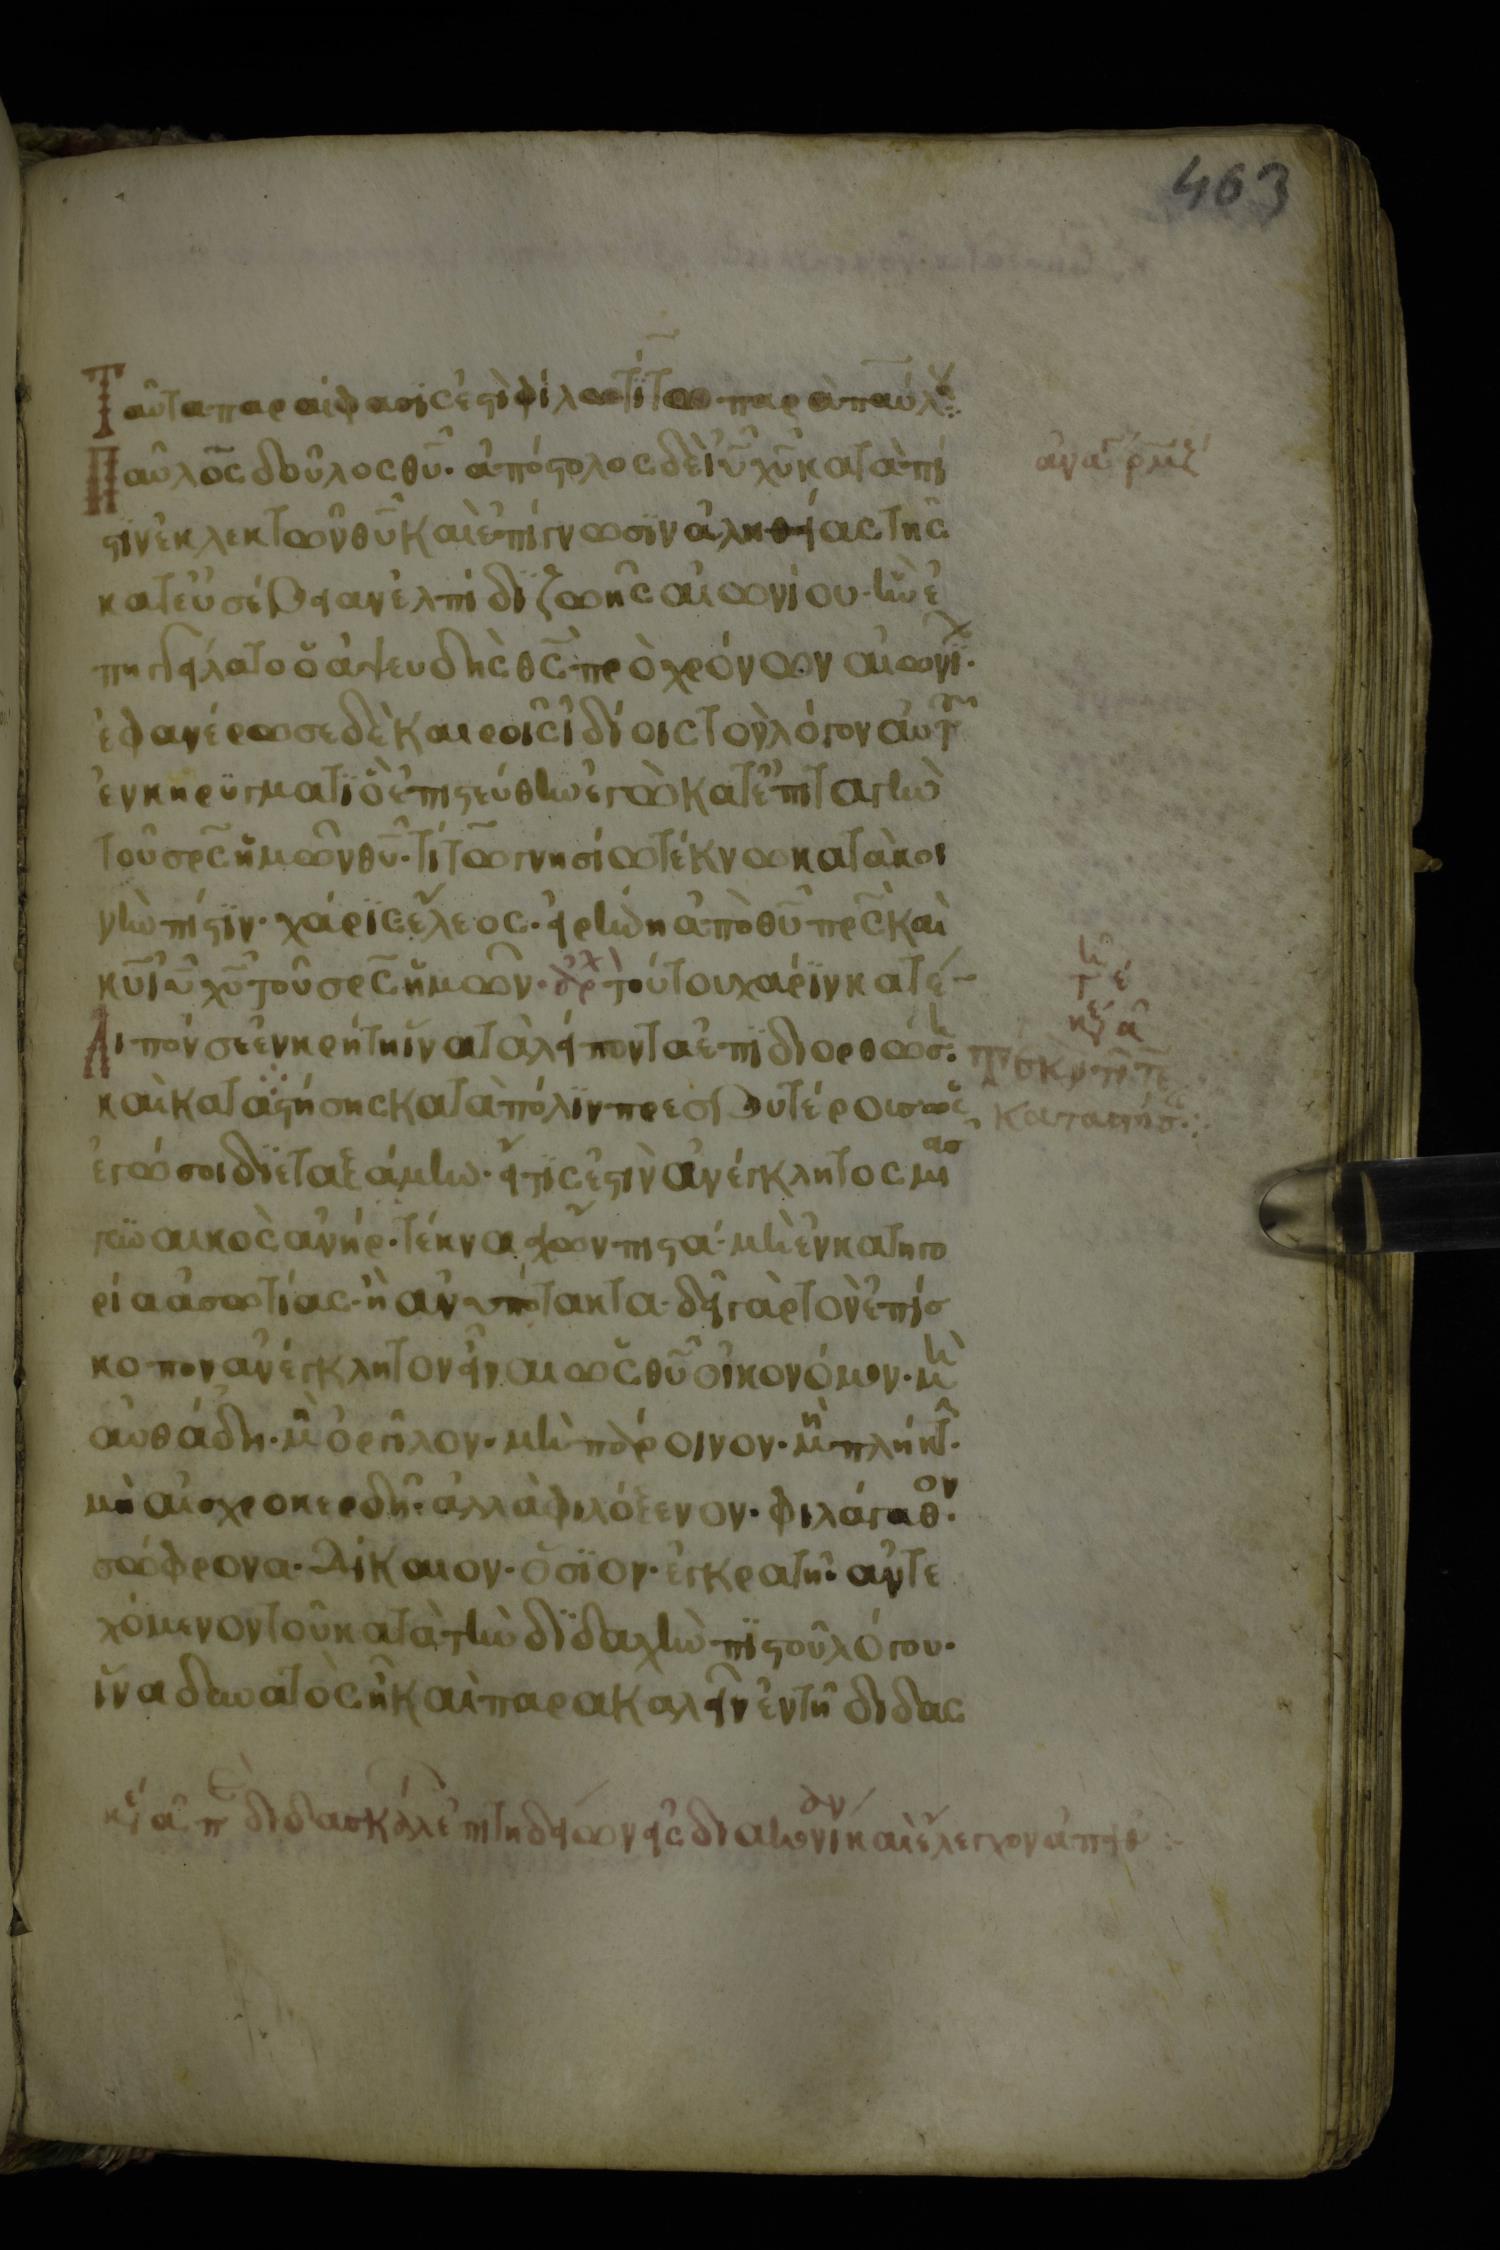 463
Ταῦτα παραίφασις ἐστὶ φίλω τίτω παρὰ παύλου:
Παῦλος δοῦλος θῦ· ἀπόστολος δὲ ἰῦ χῦ κατὰ πί
στιν ἐκλεκτῶν θῦ καὶ ἐπίγνωσιν ἀληθείας τῆς
κατ εὐσέβειαν ἐλπίδι ζωῆς αἰωνίου· ἣν ἐ
πηγγείλατο ὁ ἀψευδὴς θς πρὸ χρόνων αἰωνί·
ἐφανέρωσε δὲ καιροῖς ἰδίοις τὸν λόγον αὐτ
ἐν κηρύγματι ὃ ἐπιστεύθην ἐγὼ κατ ἐπιταγὴν
τοῦ σρς ἡμῶν θῦ· τίτω γνησίω τέκνω κατὰ κοι
νὴν πίστιν· χάρις ἔλεος· εἰρήνη ἀπὸ θῦ πρς καὶ
κῦ ἰῦ χῦ τοῦ σρς ἡμῶν· τούτου χάριν κατέ
λιπόν σε ἐν κρήτη ἵνα τὰ λείποντα ἐπιδιορθώσ·
καὶ καταστήσης κατὰ πόλιν πρεσβυτέρους ὡς
ἐγώ σοι διεταξάμην· εἴ τις ἐστὶν ἀνέγκλητος μιᾶς
γυναικὸς ἀνήρ· τέκνα ἔχων πιστά· μὴ ἐν κατηγο
ρία ἀσωτίας· ἢ ἀνυπότακτα· δεῖ γὰρ τὸν ἐπίσ
κοπον ἀνέγκλητον εἶναι ὡς θῦ οἰκονόμον· μὴ
αὐθάδη· μὴ ὀργίλον· μὴ πάροινον· μὴ πλήκτ·
μὴ αἰσχροκερδῆ· ἀλλὰ φιλόξενον· φιλάγαθον·
σώφρονα· δίκαιον· ὅσιον· ἐγκρατῆ· ἀντε
χόμενον τοῦ κατὰ τὴν διδαχὴν πιστοῦ λόγου·
ἵνα δυνατὸς ἦ καὶ παρακαλεῖν ἐν τῆ διδασ